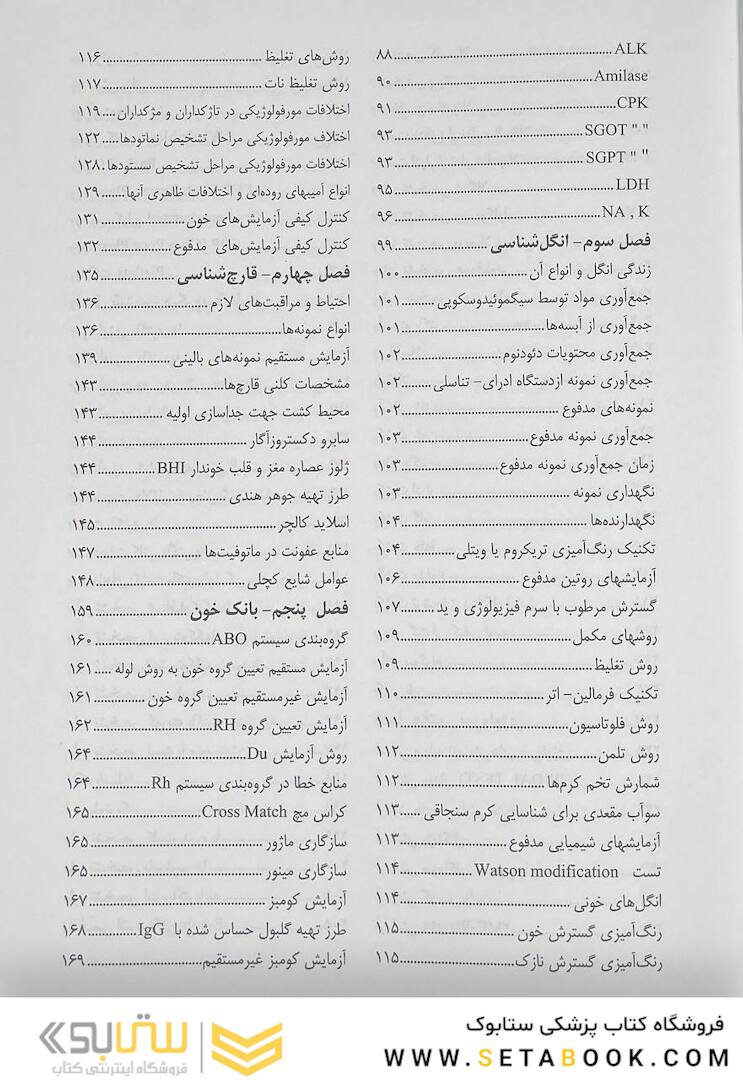 ALK ........ ۸۸
Amilase ........ ۹۰
CPK ........ ۹۱
SGOT " " ........ ۹۳
SGPT " " ........ ۹۳
LDH ........ ۹۵
NA , K ........ ۹۶
فصل سوم- انگل‌شناسی ........ ۹۹
زندگی انگل و انواع آن ........ ۱۰۰
جمع‌آوری مواد توسط سیگموئیدوسکوپی ........ ۱۰۱
جمع‌آوری از آبسه‌ها ........ ۱۰۱
جمع‌آوری محتویات دئودنوم ........ ۱۰۲
جمع‌آوری نمونه ازدستگاه ادرای- تناسلی ........ ۱۰۲
نمونه‌های مدفوع ........ ۱۰۲
جمع‌آوری نمونه مدفوع ........ ۱۰۳
زمان جمع‌آوری نمونه مدفوع ........ ۱۰۳
نگهداری نمونه ........ ۱۰۳
نگهدارنده‌ها ........ ۱۰۴
تکنیک رنگ‌آمیزی تریکروم یا ویتلی ........ ۱۰۴
آزمایشهای روتین مدفوع ........ ۱۰۶
گسترش مرطوب با سرم فیزیولوژی و ید ........ ۱۰۷
روشهای مکمل ........ ۱۰۹
روش تغلیظ ........ ۱۰۹
تکنیک فرمالین- اتر ........ ۱۱۰
روش فلوتاسیون ........ ۱۱۱
روش تلمن ........ ۱۱۲
شمارش تخم کرم‌ها ........ ۱۱۲
سوآب مقعدی برای شناسایی کرم سنجاقی ...... ۱۱۳
آزمایشهای شیمیایی مدفوع ........ ۱۱۳
تست Watson modification ........ ۱۱۴
انگل‌های خونی ........ ۱۱۴
رنگ‌آمیزی گسترش خون ........ ۱۱۵
رنگ‌آمیزی گسترش نازک ........ ۱۱۵
روش‌های تغلیظ ........ ۱۱۶
روش تغلیظ نات ........ ۱۱۷
اختلافات مورفولوژیکی در تاژکداران و مژکداران .... ۱۱۹
اختلاف مورفولوژیکی مراحل تشخیص نماتودها ..... ۱۲۲
اختلافات مورفولوژیکی مراحل تشخیص سستودها . ۱۲۸
انواع آمیبهای روده‌ای و اختلافات ظاهری آنها ....... ۱۲۹
کنترل کیفی آزمایش‌های خون ........ ۱۳۱
کنترل کیفی آزمایش‌های مدفوع ........ ۱۳۲
فصل چهارم- قارچ‌شناسی ........ ۱۳۵
احتیاط و مراقبت‌های لازم ........ ۱۳۶
انواع نمونه‌ها ........ ۱۳۶
آزمایش مستقیم نمونه‌های بالینی ........ ۱۳۹
مشخصات کلنی قارچ‌ها ........ ۱۴۳
محیط کشت جهت جداسازی اولیه ........ ۱۴۳
سابرو دکستروزآگار ........ ۱۴۴
ژلوز عصاره مغز و قلب خوندار BHI ........ ۱۴۴
طرز تهیه جوهر هندی ........ ۱۴۴
اسلاید کالچر ........ ۱۴۵
منابع عفونت در ماتوفیت‌ها ........ ۱۴۷
عوامل شایع کچلی ........ ۱۴۸
فصل پنجم- بانک خون ........ ۱۵۹
گروه‌بندی سیستم ABO ........ ۱۶۰
آزمایش مستقیم تعیین گروه خون به روش لوله ..... ۱۶۱
آزمایش غیرمستقیم تعیین گروه خون ........ ۱۶۱
آزمایش تعیین گروه RH ........ ۱۶۲
روش آزمایش Du ........ ۱۶۴
منابع خطا در گروه‌بندی سیستم Rh ........ ۱۶۴
کراس مچ Cross Match ........ ۱۶۵
سازگاری ماژور ........ ۱۶۵
سازگاری مینور ........ ۱۶۵
آزمایش کومبز ........ ۱۶۷
طرز تهیه گلبول حساس شده با IgG ........ ۱۶۸
آزمایش کومبز غیرمستقیم ........ ۱۶۹
فروشگاه کتاب پزشکی ستابوک
WWW.SETABOOK.COM
ستابوک
فروشگاه اینترنتی کتاب